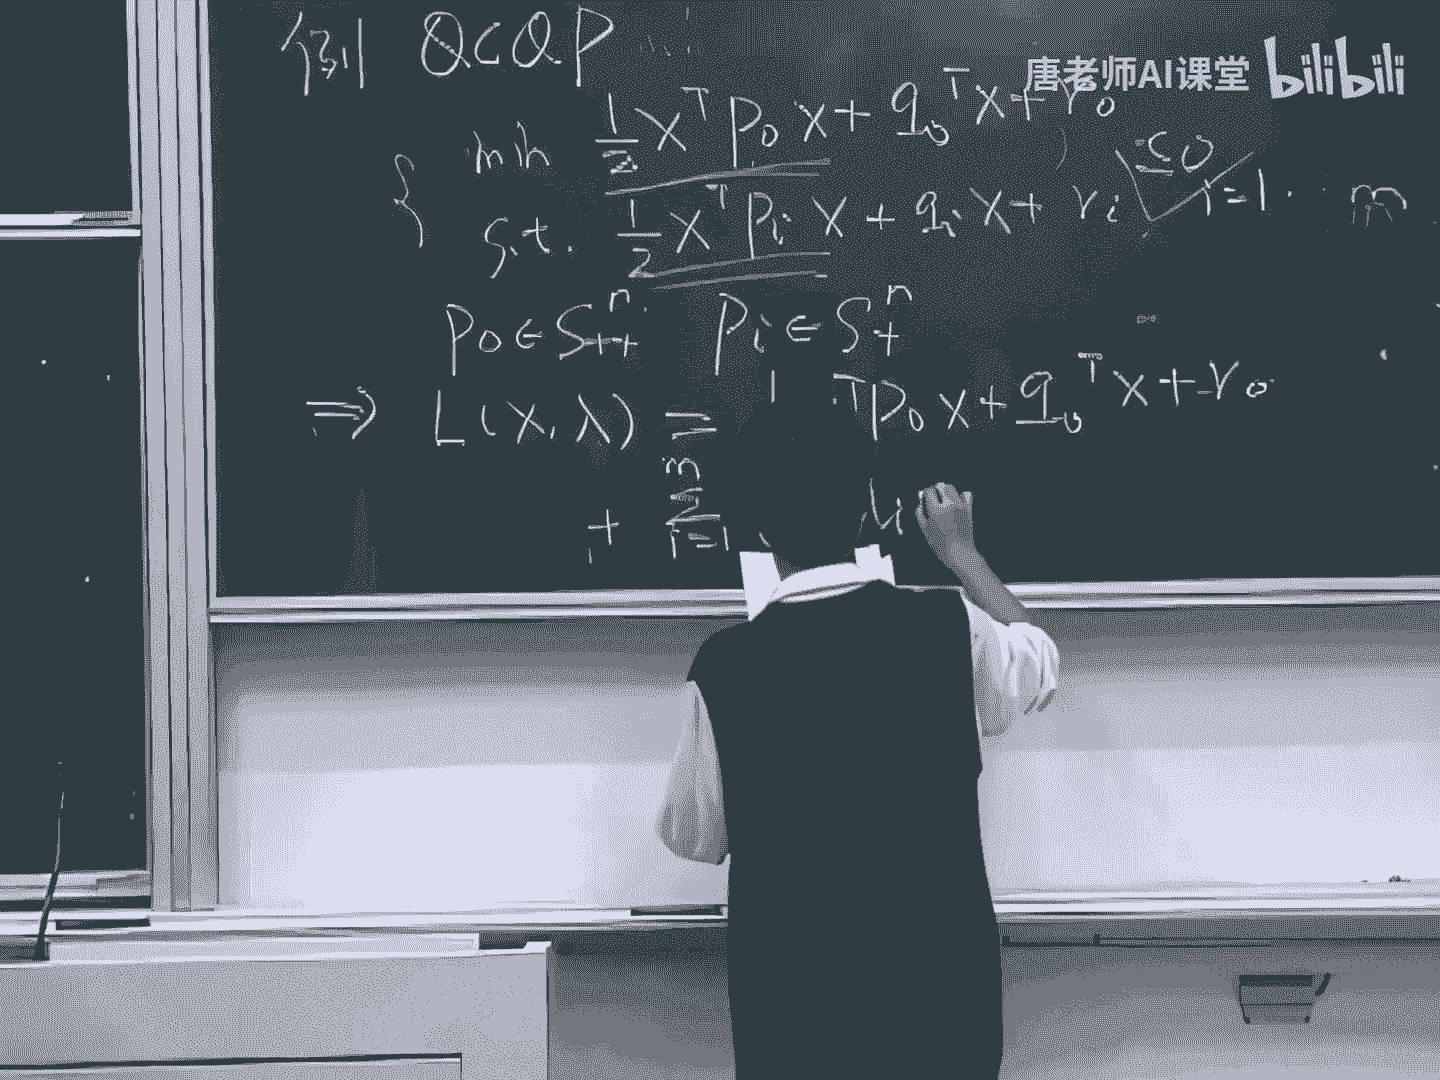 例 QCQP
唐老师AI课堂 bilibili
min 1/2 x^T P_0 x + q_0^T x + r_0
s.t. 1/2 x^T P_i x + q_i x + r_i ≤ 0 i=1. m
P_0 ∈ S_{++}^n. P_i ∈ S_+^n
⇒ L(x, λ) = 1 ^T P_0 x + q_0^T x + r_0
+ Σ_{i=1}^m